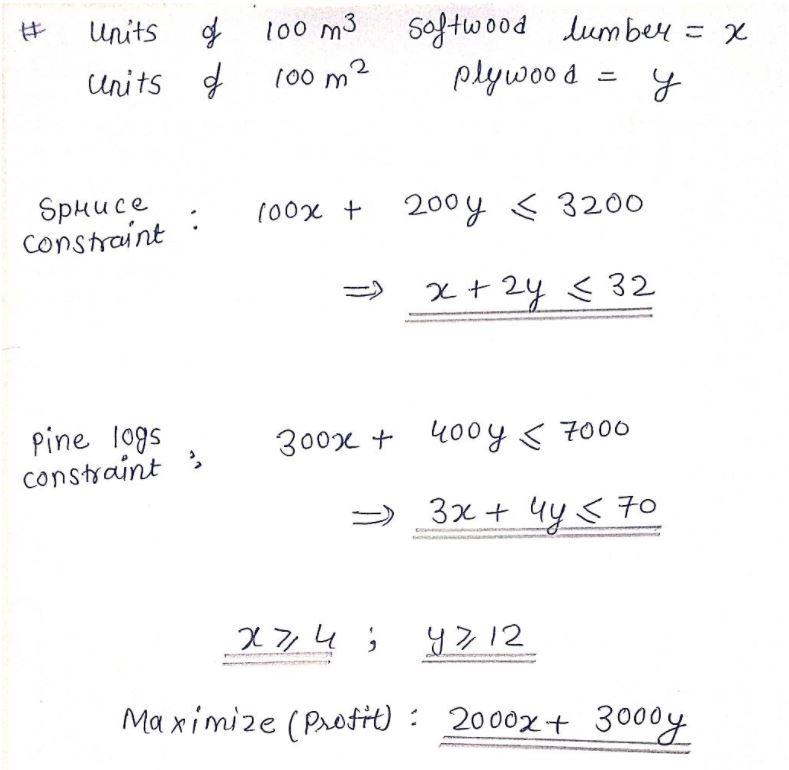 # Units of 100 m³ softwood lumber = x
Units of 100 m² plywood = y
Spruce constraint : 100x + 200y ⩽ 3200
⇒ x + 2y ⩽ 32
Pine logs constraint ; 300x + 400y ⩽ 7000
⇒ 3x + 4y ⩽ 70
x ⩾ 4 ; y ⩾ 12
Maximize (Profit) : 2000x + 3000y